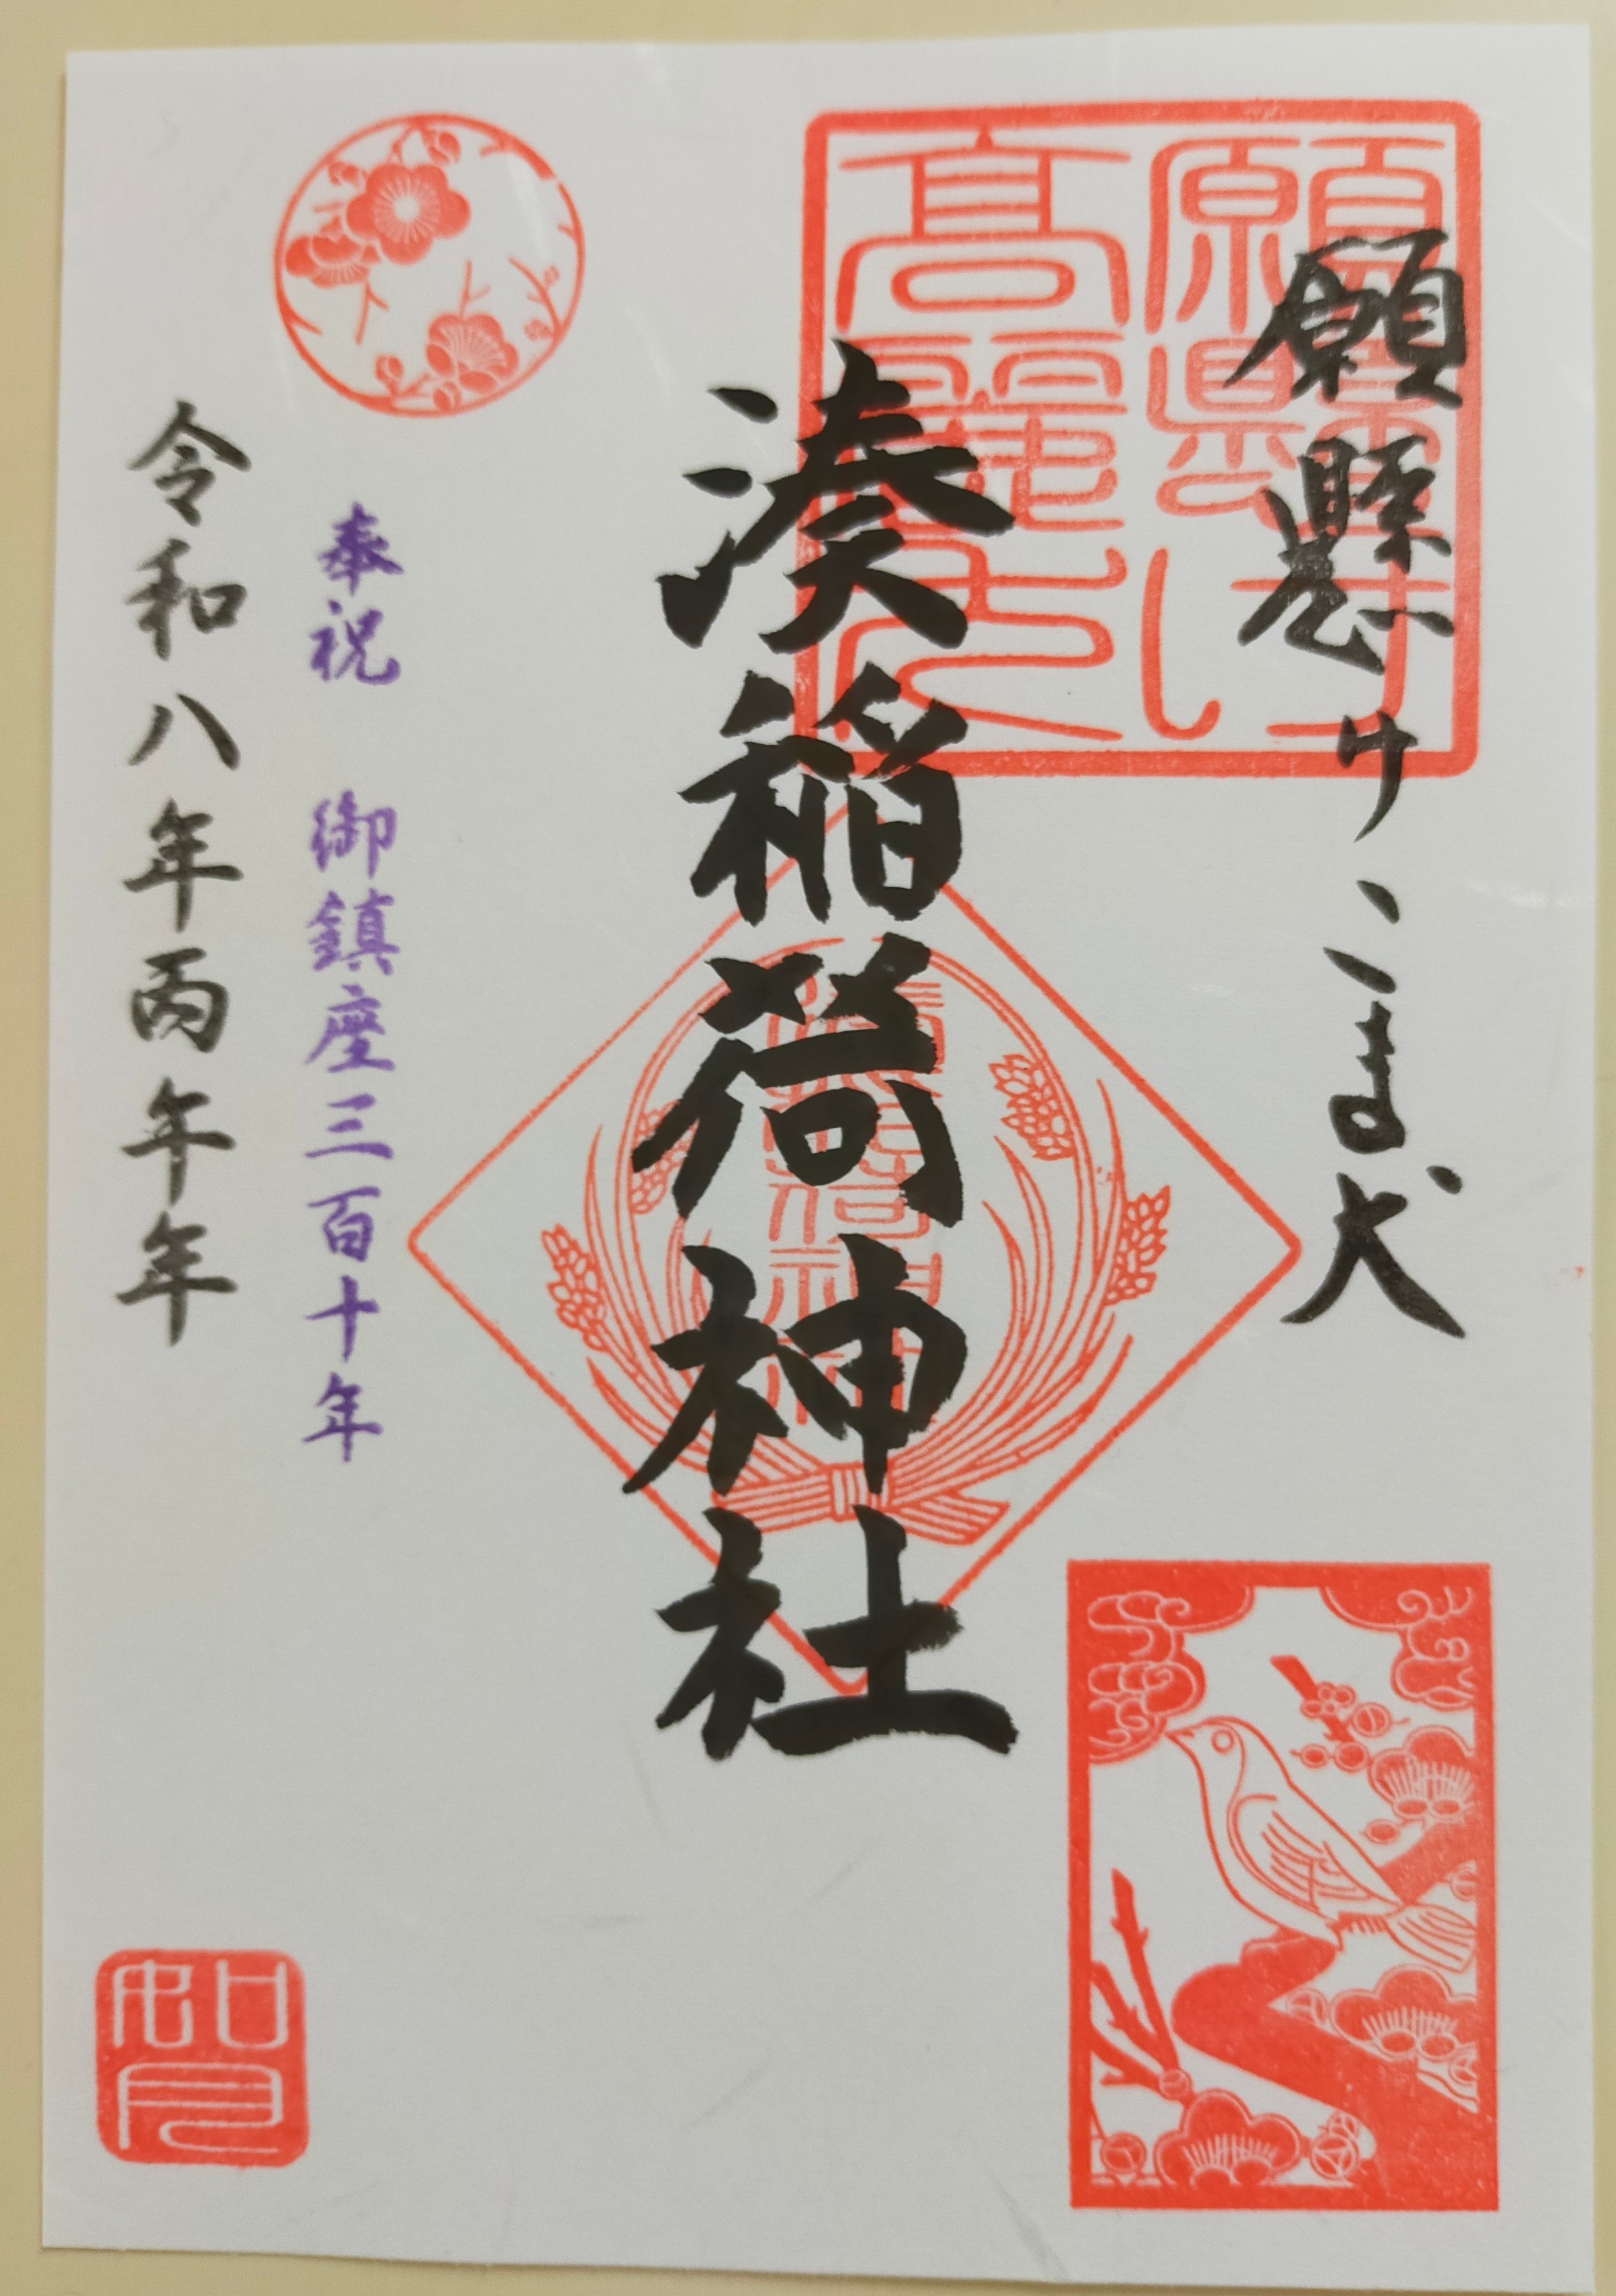 願懸けこま犬
願懸け高麗犬
湊稲荷神社
湊稲荷神社
奉祝 御鎮座三百十年
令和八年丙午年